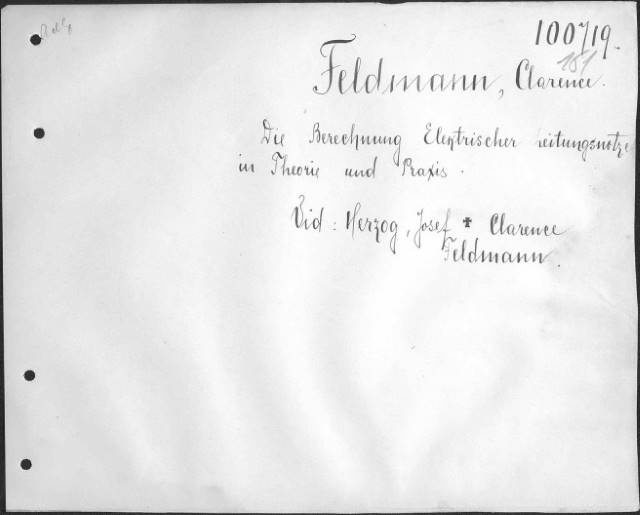 100719.
151
Feldmann, Clarence.
Die Berechnung Elektrischer Leitungsnetze
in Theorie und Praxis.
Vid: Herzog, Josef + Clarence
Feldmann.